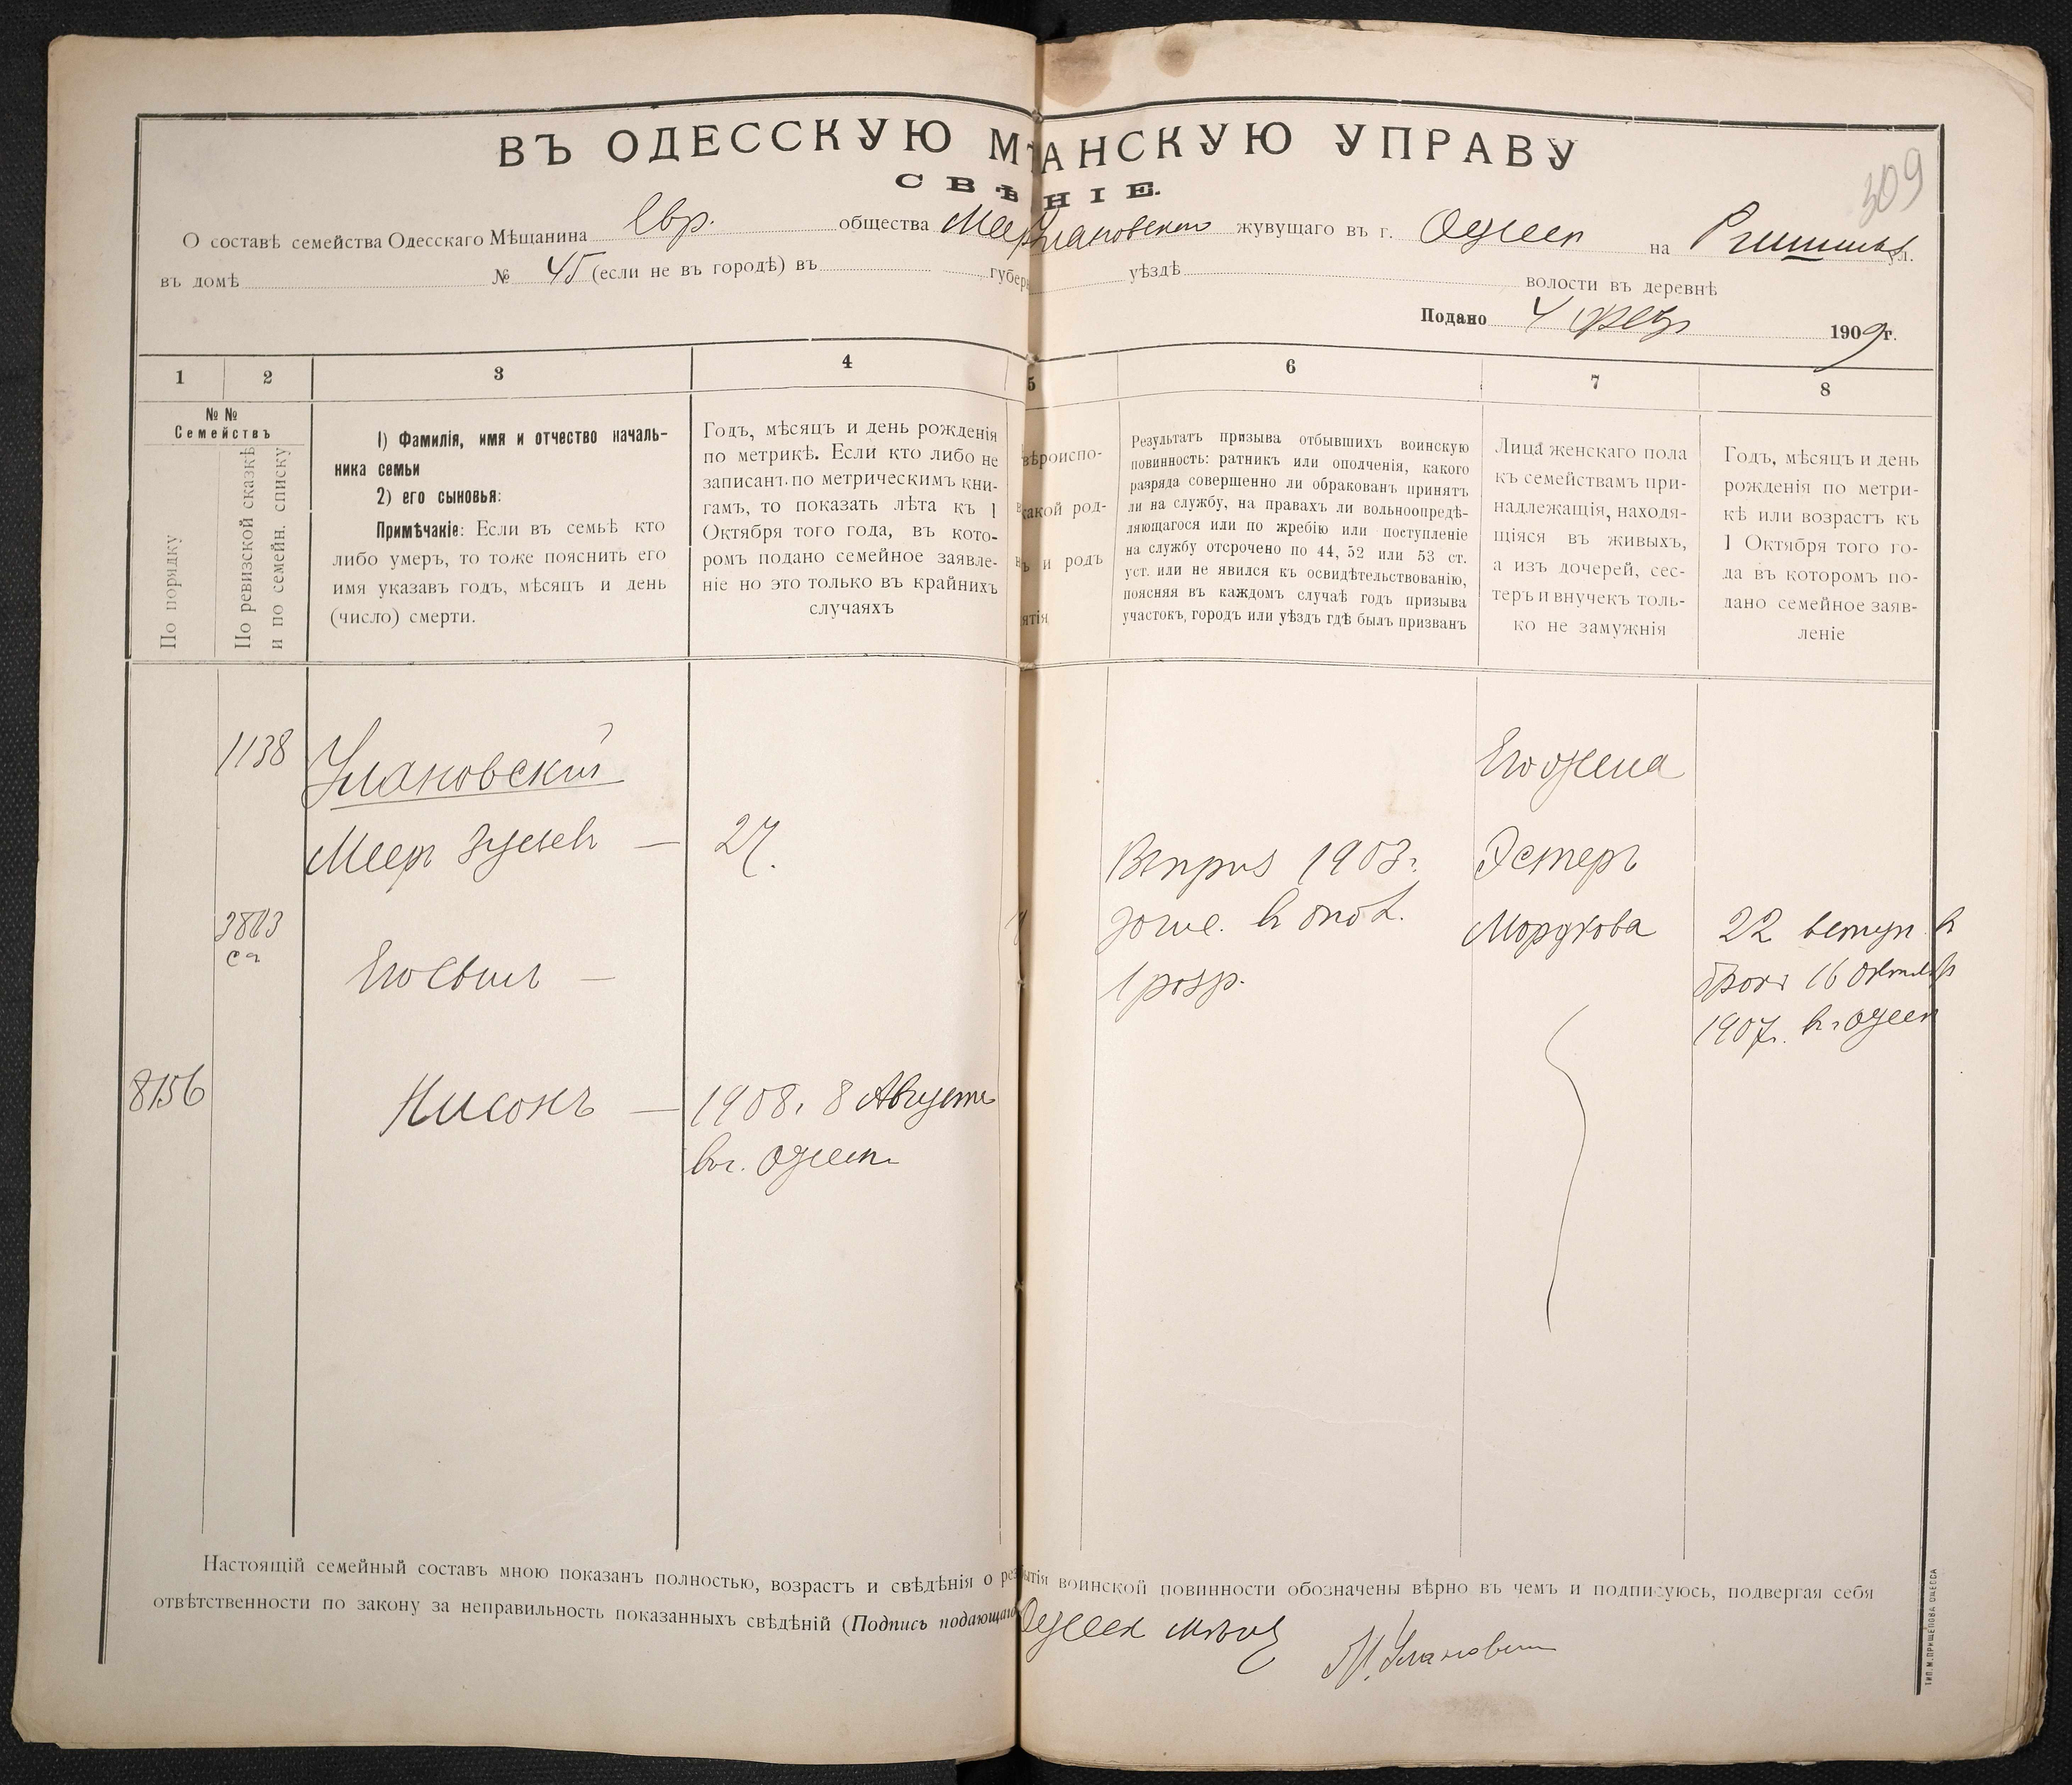 309
ВЪ ОДЕССКУЮ М АНСКУЮ УПРАВУ
СВѢ НІЕ.
О составѣ семейства Одесскаго Мѣщанина Евр. общества Меер Улановского жувущаго въ г. Одессѣ на ул.
въ домѣ № 45 (если не въ городѣ) въ губер уѣздѣ волости въ деревнѣ
Подано 4 1909 г.
1 2 3 4 5 6 7 8
№ № Семействъ
По порядку
По ревизской сказкѣ
и по семейн. списку
1) Фамилія, имя и отчество началь-
ника семьи
2) его сыновья:
Примѣчакіе: Если въ семьѣ кто
либо умеръ, то тоже пояснить его
имя указавъ годъ, мѣсяцъ и день
(число) смерти.
Годъ, мѣсяцъ и день рожденія
по метрикѣ. Если кто либо не
записанъ по метрическимъ кни-
гамъ, то показать лѣта къ 1
Октября того года, въ кото-
ромъ подано семейное заявле-
ніе но это только въ крайнихъ
случаяхъ
вѣроиспо-
какой род-
ъ и родъ
ятія
Результатъ призыва отбывшихъ воинскую
повинность: ратникъ или ополченія, какого
разряда совершенно ли обракованъ принятъ
ли на службу, на правахъ ли вольноопредѣ-
ляющагося или по жребію или поступленіе
на службу отсрочено по 44, 52 или 53 ст.
уст. или не явился къ освидѣтельствованію,
поясняя въ каждомъ случаѣ годъ призыва
участокъ, городъ или уѣздъ гдѣ былъ призванъ
Лица женскаго пола
къ семействамъ при-
надлежащія, находя-
щіяся въ живыхъ,
а изъ дочерей, сес-
теръ и внучек толь-
ко не замужнія
Годъ, мѣсяцъ и день
рожденія по метри-
кѣ или возрастъ къ
1 Октября того го-
да въ котором по-
дано семейное заяв-
леніе
1138
Улановскій
Меер Зуселев — 27.
Его сынъ —
8156
Нисонъ — 1908 г. 8 Августа
в г. Одессѣ
1903 г.
1 разр.
Его жена
Эстеръ
Мордкова
22 вступ. в
бракъ 16 Октября
1907 г. в г. Одессѣ
Настоящій семейный составъ мною показанъ полностью, возрастъ и свѣдѣнія о рез ытія воинской повинности обозначены вѣрно въ чемъ и подписуюсь, подвергая себя
отвѣтственности по закону за неправильность показанныхъ свѣдѣній (Подпись подающаго
М. Улановский
ТИП. М. ПРИЩЕПОВА ОДЕССА